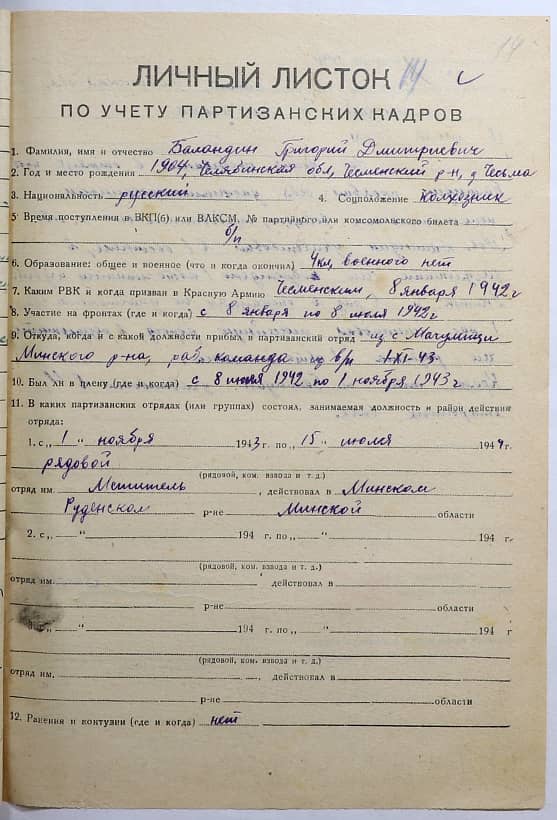 14
ЛИЧНЫЙ ЛИСТОК 14
ПО УЧЕТУ ПАРТИЗАНСКИХ КАДРОВ
1. Фамилия, имя и отчество Баландин Григорий Дмитриевич
2. Год и место рождения 1904, Челябинская обл, Чесменский р-н, д Чесьма
3. Национальность русский 4. Соцположение колхозник
5. Время поступления в ВКП(б) или ВЛКСМ, № партийного или комсомольского билета
б/п
6. Образование: общее и военное (что и когда окончил) 4 кл, военного нет
7. Каким РВК и когда призван в Красную Армию Чесменским, 8 января 1942 г
8. Участие на фронтах (где и когда) с 8 января по 8 июля 1942 г
9. Откуда, когда и с какой должности прибыл в партизанский отряд из с
Минского р-на, раб. команда в/п 1-XI-43
10. Был ли в плену (где и когда) с 8 июля 1942 по 1 ноября 1943 г
11. В каких партизанских отрядах (или группах) состоял, занимаемая должность и район действия
отряда:
1. с „ 1 " ноября 1943 г. по „ 15 " июля 1944 г.
рядовой
(рядовой, ком. взвода и т. д.)
отряд им. Мститель, действовал в Минском
Руденском р-не Минской области
2. с „ " 194 г. по „ " 194 г.
(рядовой, ком. взвода и т. д.)
отряд им. действовал в
р-не области
с „ " 194 г. по „ " 194 г
(рядовой, ком. взвода и т. д.)
отряд им. , действовал в
р-не области
12. Ранения и контузии (где и когда) нет